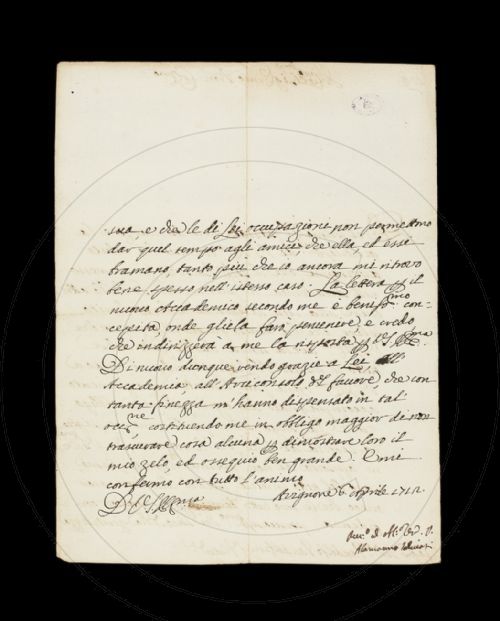 sua e che le di Lei occupazioni non permettono
dar quel tempo agli amici che ella, ed essi
bramano, tanto più che io ancora mi ritrovo
bene spesso nell'istesso caso. La lettera p il
nuovo Accademico secondo me è beniss.mo con-
cepita, onde gliela farò pervenire, e credo
che indirizzerà a me la risposta p V.S. Ill.ma
Di nuovo dunque rendo grazie a Lei all'
Accademia, all'Arciconsolo del favore, che con
tanta finezza m'hanno dispensato in tal
occ.ne costituendo me in obbligo maggior di non
trascurare cosa alcuna p dimostrare loro il
mio zelo, ed ossequio ben grande. E mi
confermo con tutto l'animo
D. V.S. Ill.ma Avignone 6 Aprile 1712.
Alamanno Salviati